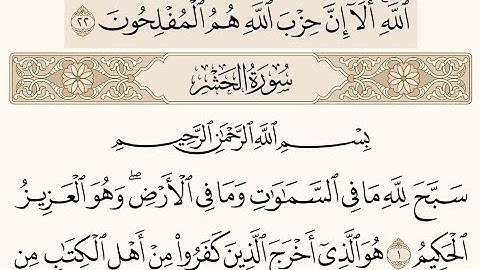 ٱللَّهِۚ أَلَآ إِنَّ حِزۡبَ ٱللَّهِ هُمُ ٱلۡمُفۡلِحُونَ ٢٢
سُورَةُ الحَشْرِ
بِسۡمِ ٱللَّهِ ٱلرَّحۡمَٰنِ ٱلرَّحِيمِ
سَبَّحَ لِلَّهِ مَا فِي ٱلسَّمَٰوَٰتِ وَمَا فِي ٱلۡأَرۡضِۖ وَهُوَ ٱلۡعَزِيزُ
ٱلۡحَكِيمُ ١ هُوَ ٱلَّذِيٓ أَخۡرَجَ ٱلَّذِينَ كَفَرُواْ مِنۡ أَهۡلِ ٱلۡكِتَٰبِ مِن